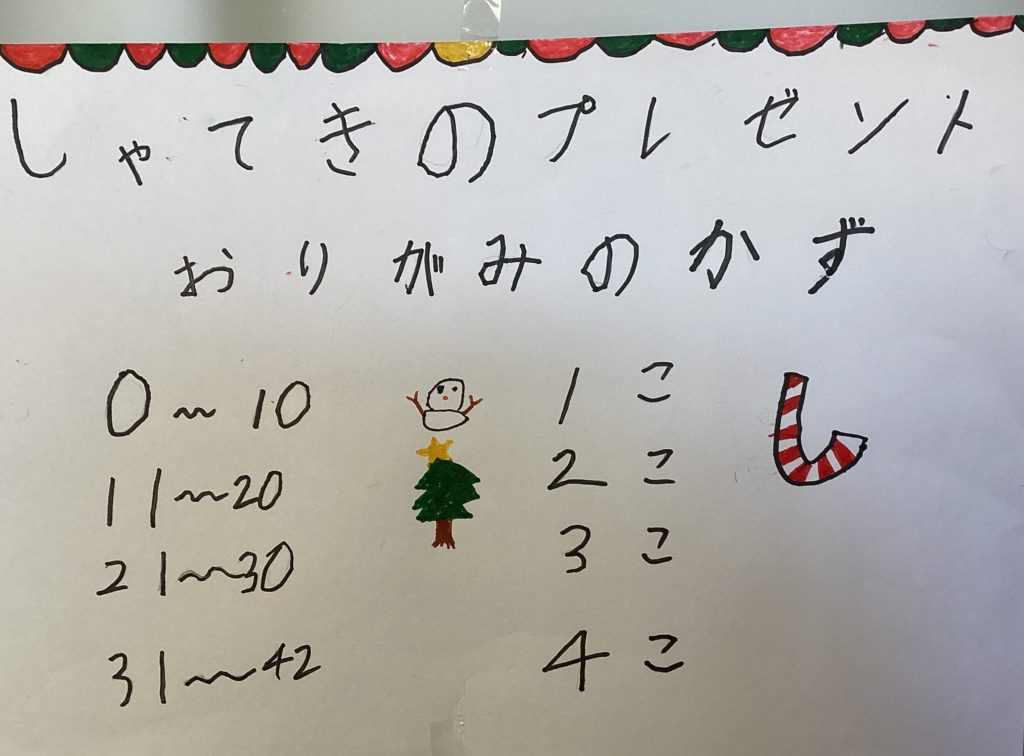 しゃてきのプレゼント
おりがみのかず
0〜10 1こ
11〜20 2こ
21〜30 3こ
31〜42 4こ